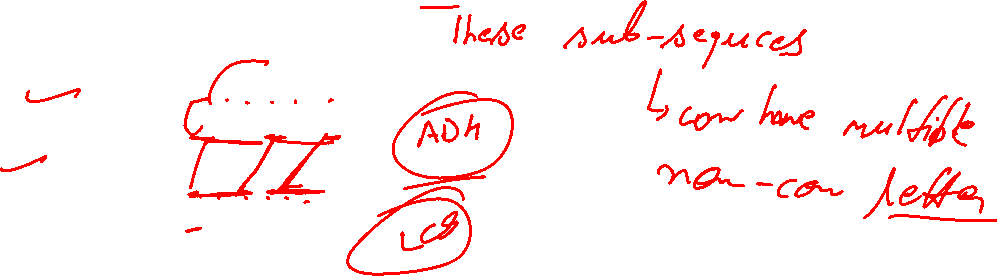 These sub-sequces
↳ can have multiple
ADH
non-con letter
LCS